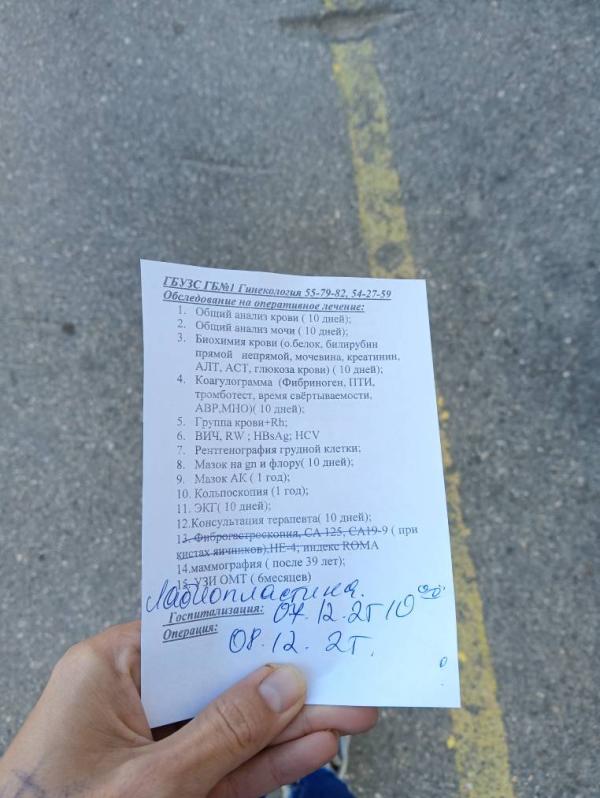 ГБУЗС ГБ№1 Гинекология 55-79-82, 54-27-59
Обследование на оперативное лечение:
1. Общий анализ крови ( 10 дней);
2. Общий анализ мочи ( 10 дней);
3. Биохимия крови (о.белок, билирубин
прямой непрямой, мочевина, креатинин,
АЛТ, АСТ, глюкоза крови) ( 10 дней);
4. Коагулограмма (Фибриноген, ПТИ,
тромботест, время свёртываемости,
АВР,МНО)( 10 дней);
5. Группа крови+Rh;
6. ВИЧ, RW ; HBsAg; HCV
7. Рентгенография грудной клетки;
8. Мазок на gn и флору( 10 дней);
9. Мазок АК ( 1 год);
10. Кольпоскопия (1 год);
11. ЭКГ( 10 дней);
12.Консультация терапевта( 10 дней);
13. Фиброгастроскопия, СА 125, СА19-9 ( при
кистах яичников),НЕ-4; индекс ROMA
14.маммография ( после 39 лет);
15. УЗИ ОМТ ( 6месяцев)
Лабиопластика.
Госпитализация: 07.12.21 10 00
Операция:
08.12. 21.